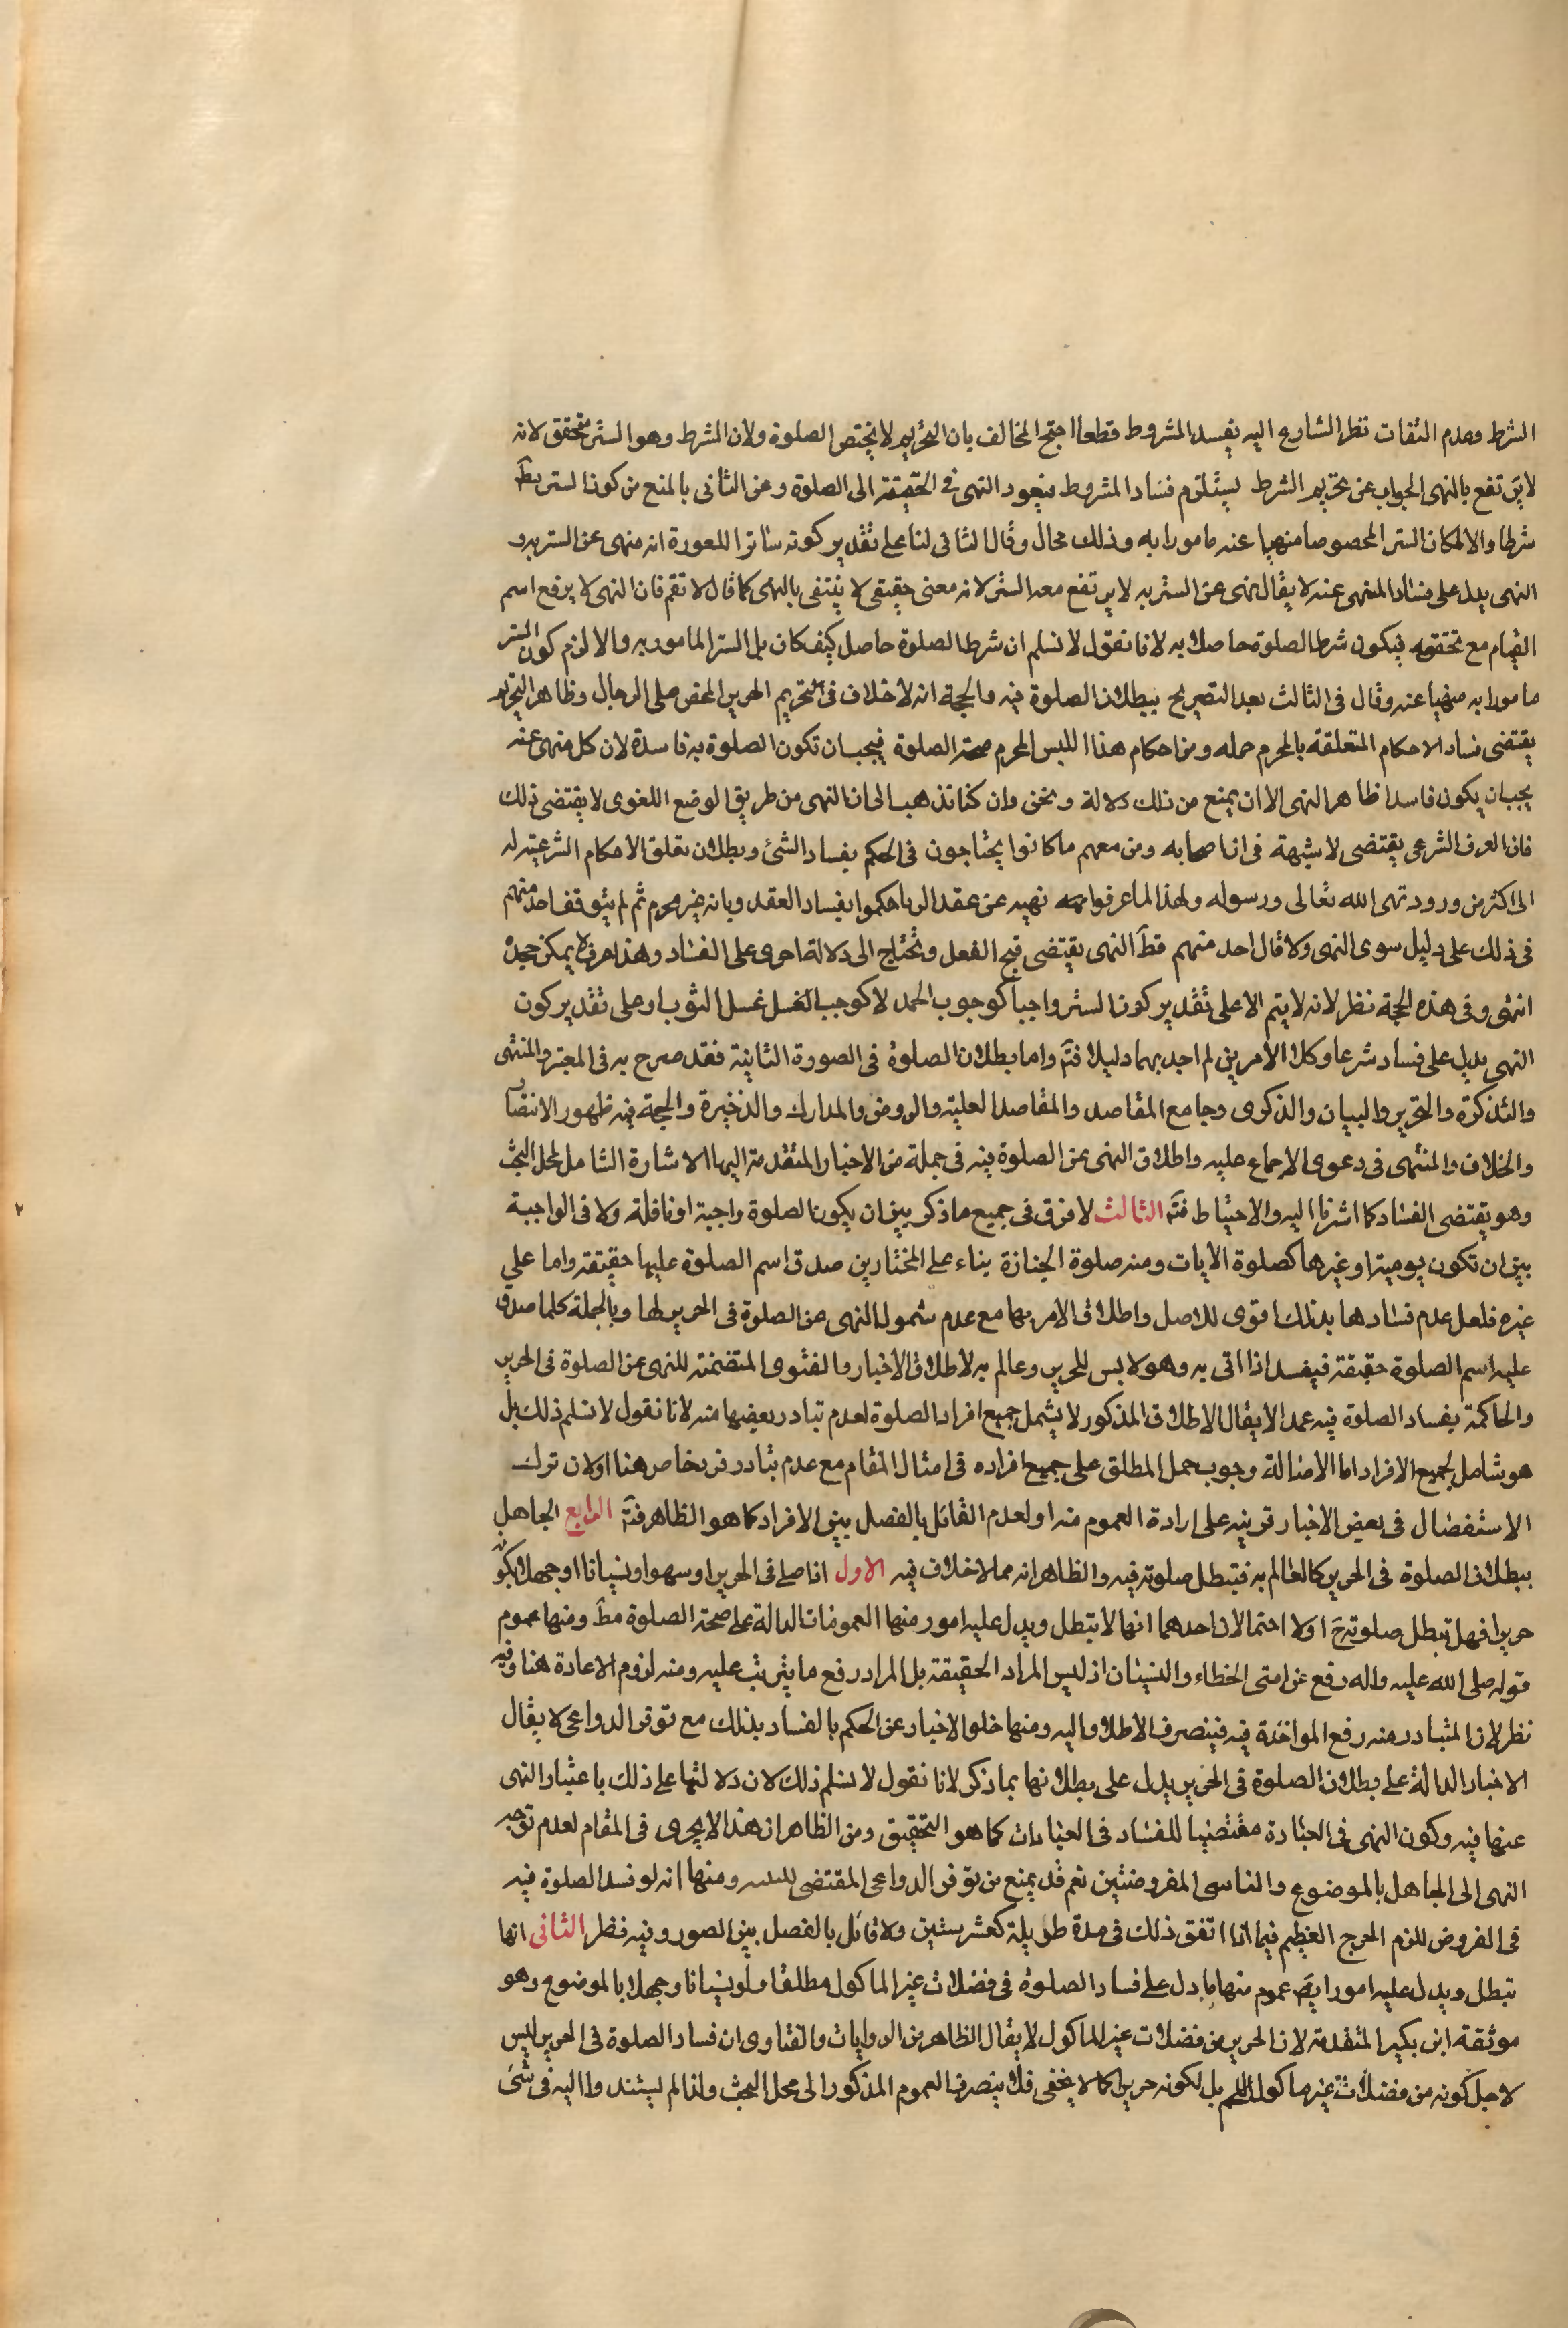 الشرط وعدم التفات نظر الشارع اليه يفسد المشروط قطعا احتج المخالف بان التحريم لا يختص الصلوة ولان الشرط وهو الستر متحقق لانه
لا يرتفع بالنهى الجواب عن تحريم الشرط يستلزم فساد المشروط فيعود النهى فى الحقيقة الى الصلوة وعن الثانى بالمنع من كون الستر مط
شرطا والا لكان الستر المخصوص منهيا عنه مامورا به وذلك محال وقال الثانى لنا على تقدير كونه ساترا للعورة انه منهى عن الستر به و
النهى يدل على فساد المنهى عنه لا يقال نهى عن الستر به لا يرتفع معه الستر لانه معنى حقيقى لا ينتفى بالنهى كما قال لا تقم فان النهى لا يرفع اسم
القيام مع تحققه فيكون شرط الصلوة حاصلا به لانا نقول لا نسلم ان شرط الصلوة حاصل كيف كان بل الستر المامور به والا لزم كون الستر
مامورا به منهيا عنه وقال فى الثالث بعد التصريح ببطلان الصلوة فيه والحجة انه لا خلاف فى تحريم الحرير المحض على الرجال وظاهر التحريم
يقتضى فساد الاحكام المتعلقة بالمحرم جمله ومن احكام هذا اللبس المحرم صحة الصلوة فيجب ان تكون الصلوة به فاسدة لان كل منهى عنه
يجب ان يكون فاسدا ظاهر النهى الا ان يمنع من ذلك دلالة ونحن وان كنا نذهب الى ان النهى من طريق الوضع اللغوى لا يقتضى ذلك
فان العرف الشرعى يقتضى لا شبهة فى ان اصحابه ومن معهم ما كانوا يحتاجون فى الحكم بفساد الشئ وبطلان تعلق الاحكام الشرعية له
الى اكثر من ورود نهى الله تعالى ورسوله ولهذا لما عرفوا نهيه عن عقد الربا حكموا بفساد العقد وبانه غير محرم ثم لم يتوقف احد منهم
فى ذلك على دليل سوى النهى ولا قال احد منهم قط النهى يقتضى قبح الفعل ونحتاج الى دلالة اخرى على الفساد وهذا عرف لا يمكن جحده
انتهى وفى هذه الحجة نظر لانه لا يتم الا على تقدير كون الستر واجبا كوجوب الحمد لا كوجب الغسل غسل الثوب او على تقدير كون
النهى يدل على فساد شرعا وكلا الامرين لم اجد بهما دليلا فتم واما بطلان الصلوة فى الصورة الثانية فقد صرح به فى المعتبر والمنتهى
والتذكرة والتحرير والبيان والذكرى وجامع المقاصد والمقاصد العلية والروض والمدارك والذخيرة والحجة فيه ظهور الانتصار
والخلاف والمنتهى فى دعوى الاجماع عليه واطلاق النهى عن الصلوة فيه فى جملة من الاخبار المتقدمة اليها الاشارة الشامل لمحل البحث
وهو يقتضى الفساد كما اشرنا اليه والاحتياط فتم الثالث لا فرق فى جميع ما ذكر بين ان يكون الصلوة واجبة او نافلة ولا فى الواجبة
بين ان تكون يومية او غيرها كصلوة الايات ومنه صلوة الجنازة بناء على المختار من صدق اسم الصلوة عليها حقيقة واما على
غيره فلعل عدم فسادها بذلك اقوى للاصل واطلاق الامر بها مع عدم شمول النهى عن الصلوة فى الحرير لها وبالجملة كلما صدق
عليه اسم الصلوة حقيقة فيفسد اذا اتى به وهو لابس للحرير وعالم به لاطلاق الاخبار والفتوى المتضمنة للنهى عن الصلوة فى الحرير
والحاكمة بفساد الصلوة فيه عمدا لا يقال الاطلاق المذكور لا يشمل جميع افراد الصلوة لعدم تبادر بعضها منه لانا نقول لا نسلم ذلك بل
هو شامل لجميع الافراد اما لاصالة وجوب حمل المطلق على جميع افراده فى امثال المقام مع عدم تبادر فرد خاص هنا او لان ترك
الاستفصال فى بعض الاخبار قرينه على ارادة العموم منه او لعدم القائل بالفصل بين الافراد كما هو الظاهر فتم الرابع الجاهل
ببطلان الصلوة فى الحرير كالعالم به فتبطل صلوته فيه والظاهر انه مما لا خلاف فيه الاول اذا صلى فى الحرير او سهوا او نسيانا او جهلا بكونه
حريرا فهل تبطل صلوته ح اولا احتمالان احدهما انها لا تبطل ويدل عليه امور منها العمومات الدالة على صحة الصلوة مط ومنها عموم
قوله صلى الله عليه واله رفع عن امتى الخطاء والنسيان اذ ليس المراد الحقيقة بل المراد رفع ما يترتب عليه ومنه لزوم الاعادة هنا وفيه
نظر لان المتبادر منه رفع المواخذة فيه فينصرف الاطلاق اليه ومنها خلو الاخبار عن الحكم بالفساد بذلك مع توفر الدواعى لا يقال
الاخبار الدالة على بطلان الصلوة فى الحرير يدل على بطلانها بما ذكر لانا نقول لا نسلم ذلك لان دلالتها على ذلك باعتبار النهى
عنها فيه وكون النهى فى العبادة مقتضيا للفساد فى العبادات كما هو التحقيق ومن الظاهر ان هذا لا يجرى فى المقام لعدم توجه
النهى الى الجاهل بالموضوع والناسى المفروضين نعم قد يمنع من توفر الدواعى المقتضى ومنها انه لو فسد الصلوة فيه
فى الفروض للزم الحرج العظيم فيما اذا اتفق ذلك فى مدة طويلة كعشر سنين ولا قائل بالفصل بين الصور وفيه نظر الثانى انها
تبطل ويدل عليه امور ايضا عموم منها ما دل على فساد الصلوة فى فضلات غير الماكول مطلقا ولو نسيانا وجهلا بالموضوع وهو
موثقة ابن بكير المتقدمة لان الحرير من فضلات غير الماكول لا يقال الظاهر من الروايات والفتاوى ان فساد الصلوة فى الحرير ليس
لاجل كونه من فضلات غير ماكول اللحم بل لكونه حريرا كما لا يخفى فلا ينصرف العموم المذكور الى محل البحث ولذا لم يستندوا اليه فى شئ